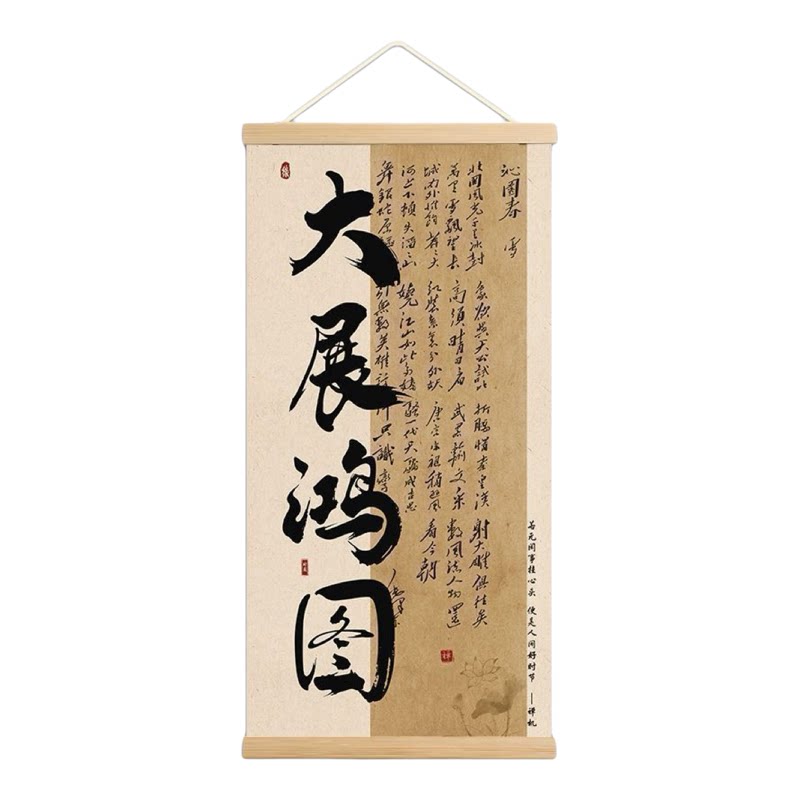 大展鸿图
沁園春 雪
北国风光千里冰封
万里雪飘望长
城内外惟余莽莽大
河上下顿失滔滔山
舞银蛇原驰
象欲与天公試比
高須晴日看
红装素裹分外妖
娆江山如此多娇
引無數英雄
折腰惜秦皇漢
武略輸文采
唐宗宋祖稍逊风
骚一代天骄成吉思
只識彎
射大雕俱往矣
數风流人物還
看今朝
若无闲事挂心头 便是人间好时节 ——禅机